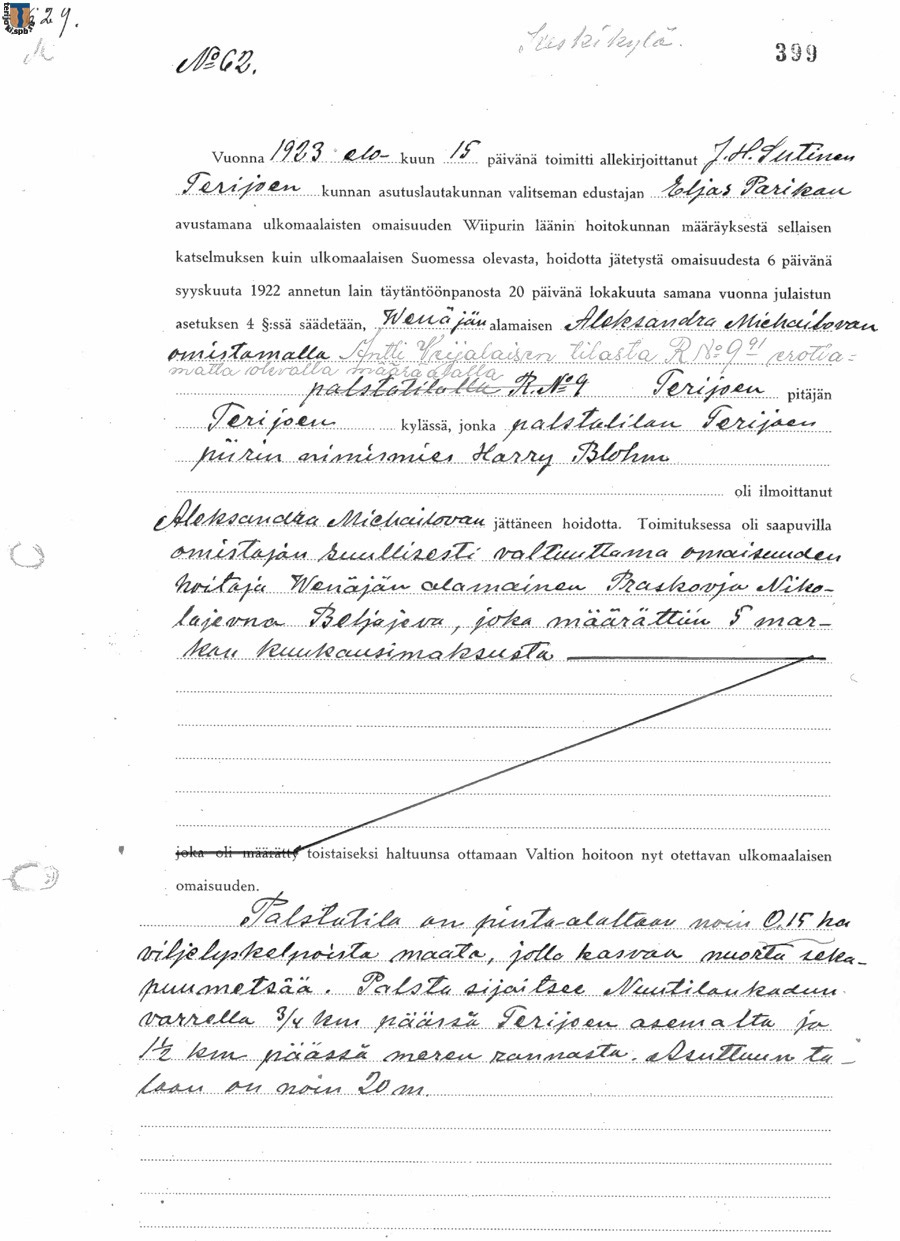 29.
Keskikylä.
No 62.
399
Vuonna 1923 elo- kuun 15 päivänä toimitti allekirjoittanut J. H. Sutinen
Terijoen kunnan asutuslautakunnan valitseman edustajan Eljas Parikan
avustamana ulkomaalaisten omaisuuden Wiipurin läänin hoitokunnan määräyksestä sellaisen
katselmuksen kuin ulkomaalaisen Suomessa olevasta, hoidotta jätetystä omaisuudesta 6 päivänä
syyskuuta 1922 annetun lain täytäntöönpanosta 20 päivänä lokakuuta samana vuonna julaistun
asetuksen 4 §:ssä säädetään, Wenäjän alamaisen Aleksandra Michailovan
omistamalla Antti Veijalaisen tilasta R No 9⁹¹ erotta=
matta olevalla määräalalla
palstatilalla R. No 9 Terijoen pitäjän
Terijoen kylässä, jonka palstatilan Terijoen
piirin nimismies Harry Blohm
oli ilmoittanut
Aleksandra Michailovan jättäneen hoidotta. Toimituksessa oli saapuvilla
omistajan suullisesti valtuuttama omaisuuden
hoitaja Wenäjän alamainen Praskovja Niko-
lajevna Beljajeva, joka määrättiin 5 mar-
kan kuukausimaksusta
joka oli määrätty toistaiseksi haltuunsa ottamaan Valtion hoitoon nyt otettavan ulkomaalaisen
omaisuuden.
Palstatila on pinta-alaltaan noin 0.15 ha
viljelyskelpoista maata, jolla kasvaa nuorta seka-
puumetsää. Palsta sijaitsee Nuutilankadun
varrella 3/4 km päässä Terijoen asemalta ja
1½ km päässä meren rannasta. Asuttuun ta-
loon on noin 20 m.